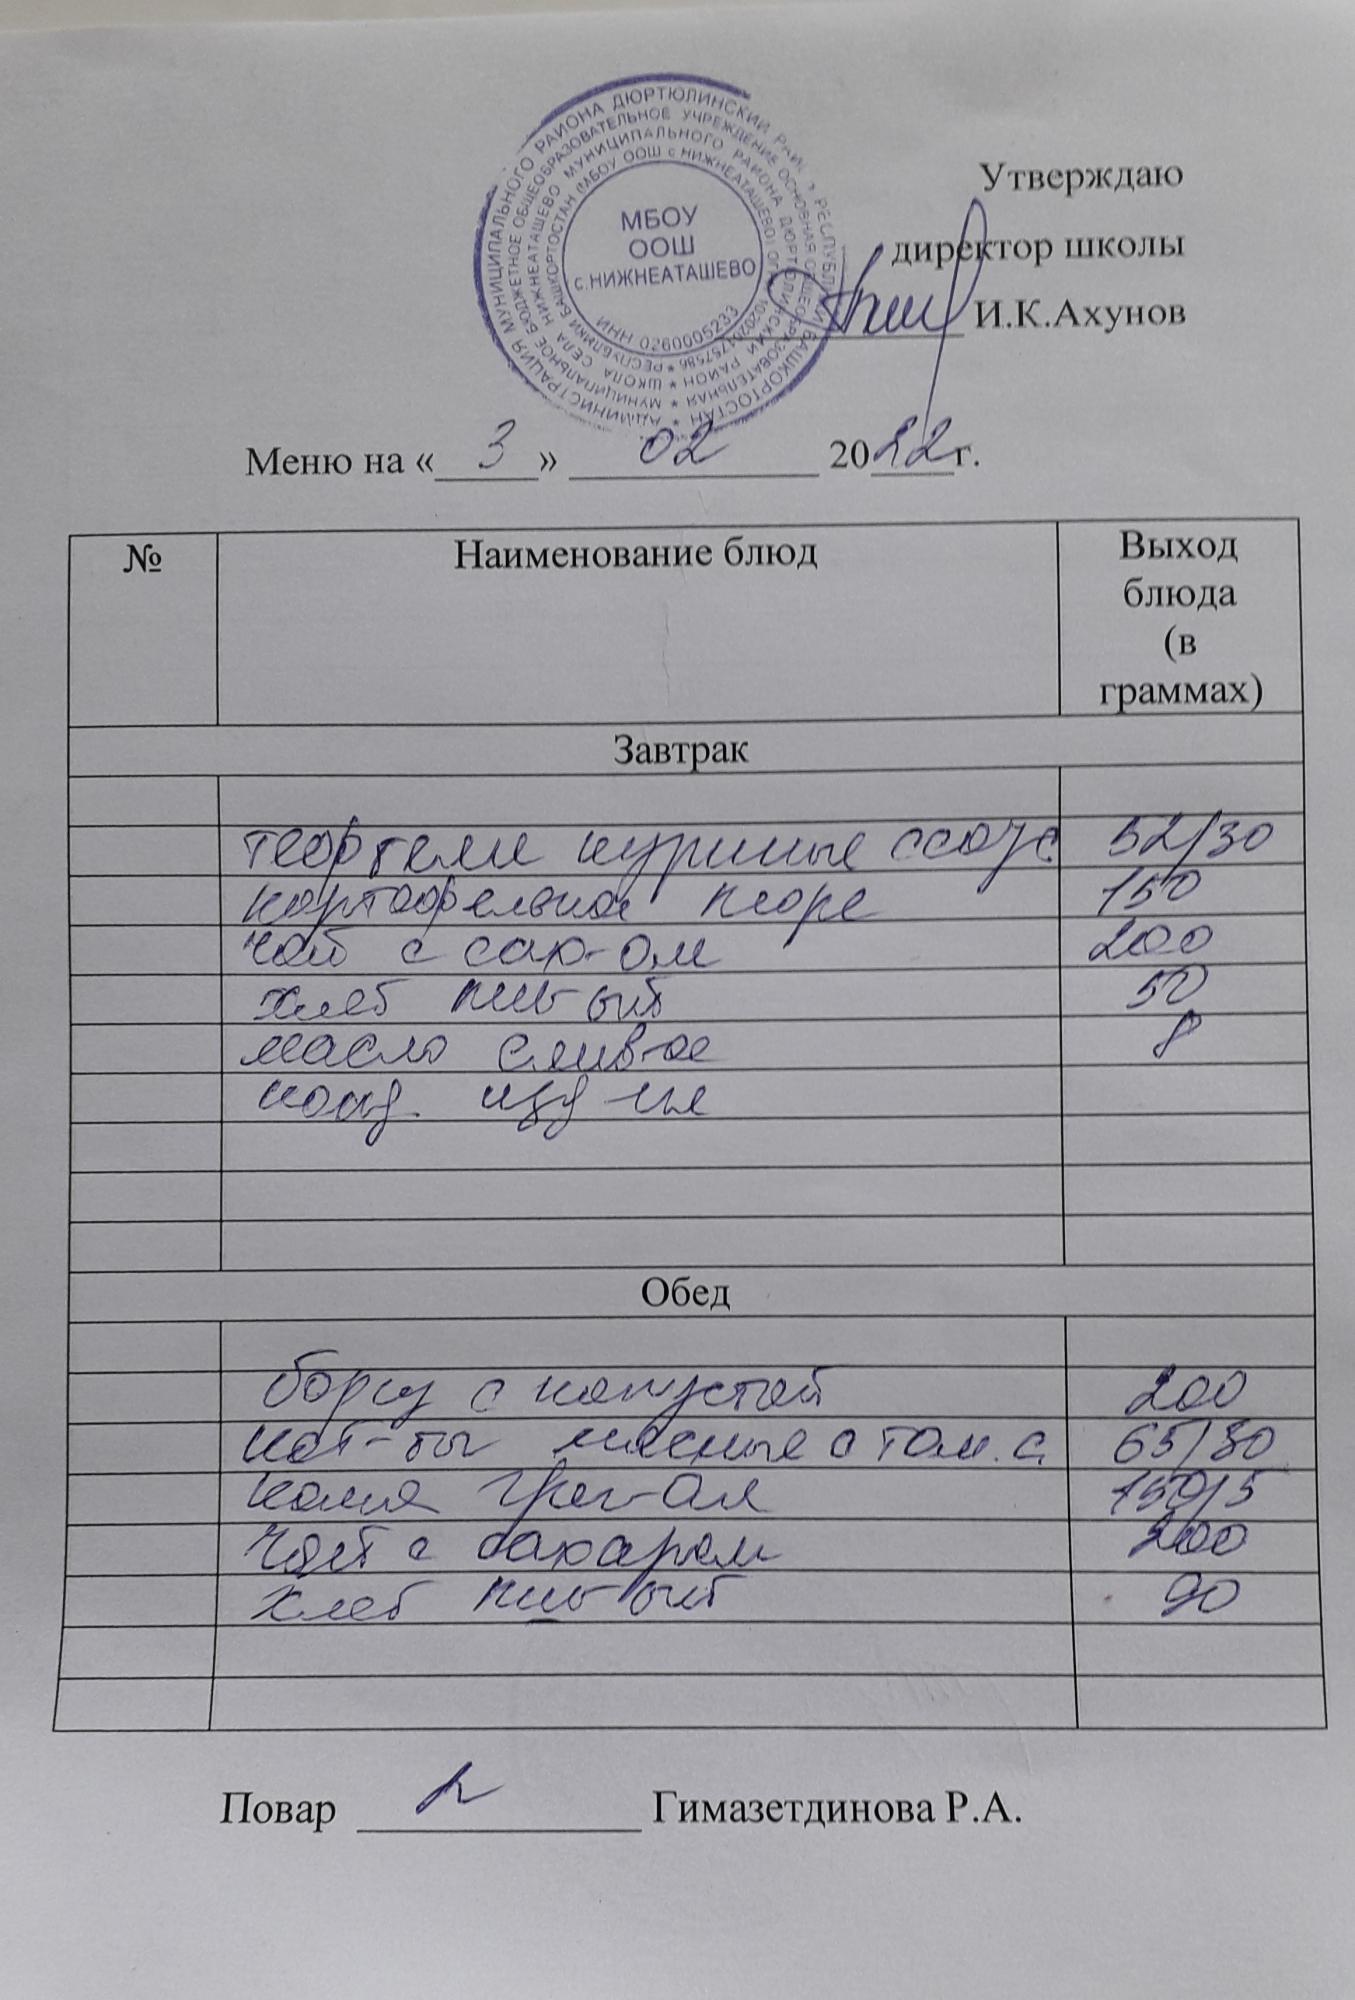 АДМИНИСТРАЦИЯ МУНИЦИПАЛЬНОГО РАЙОНА ДЮРТЮЛИНСКИЙ РАЙОН РЕСПУБЛИКИ БАШКОРТОСТАН *
МУНИЦИПАЛЬНОЕ БЮДЖЕТНОЕ ОБЩЕОБРАЗОВАТЕЛЬНОЕ УЧРЕЖДЕНИЕ ОСНОВНАЯ ОБЩЕОБРАЗОВАТЕЛЬНАЯ *
ШКОЛА СЕЛА НИЖНЕАТАШЕВО МУНИЦИПАЛЬНОГО РАЙОНА ДЮРТЮЛИНСКИЙ РАЙОН *
РЕСПУБЛИКИ БАШКОРТОСТАН (МБОУ ООШ с НИЖНЕАТАШЕВО)
МБОУ
ООШ
с.НИЖНЕАТАШЕВО
ИНН 0260005233
Утверждаю
директор школы
И.К.Ахунов
Меню на « 3 » 02 2022г.
№ Наименование блюд Выход
блюда
(в
граммах)
Завтрак
тефтели куриные соус 52/30
картофельное пюре 150
чай с сах-ом 200
хлеб пш-ый 50
масло слив-ое 8
конд. изд-ия
Обед
борщ с капустой 200
кот-ты мясные с том. с. 65/30
каша греч-ая 150/5
чай с сахаром 200
хлеб пш-ый 90
Повар Гимазетдинова Р.А.